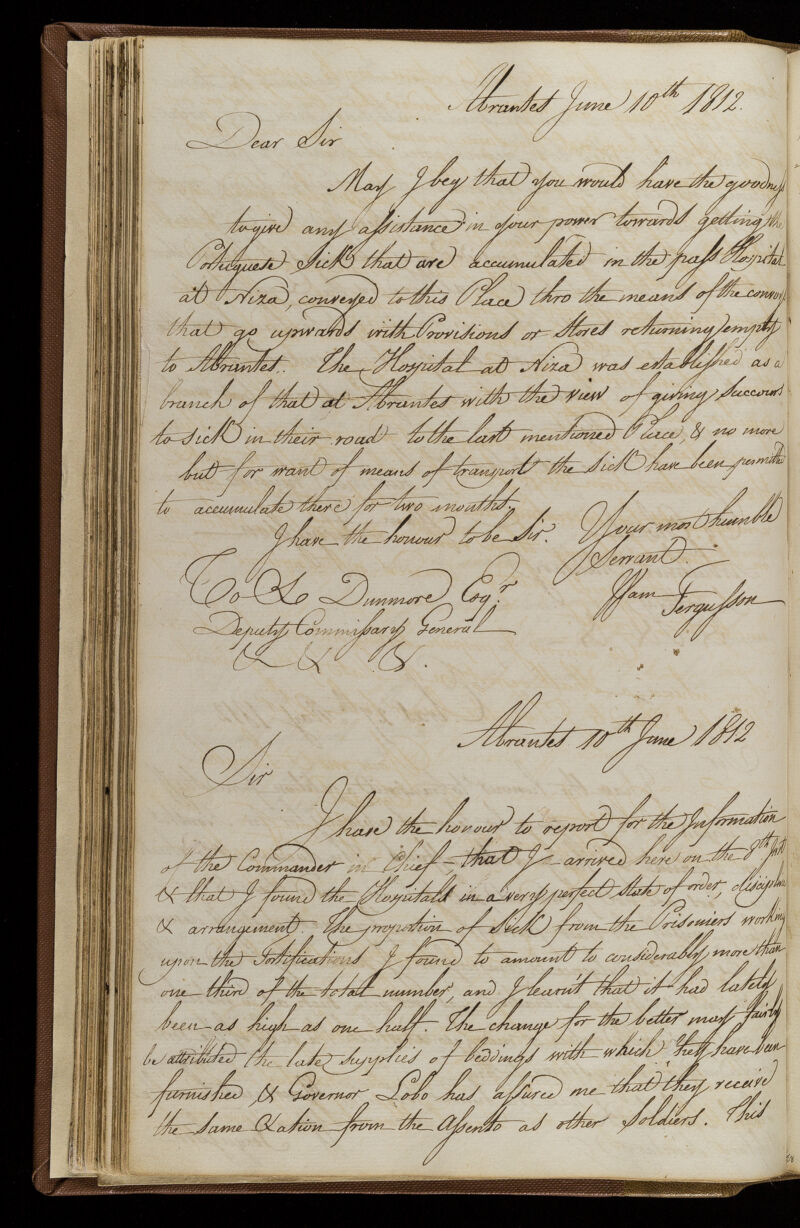 Abrantes June 10th 1812.
Dear Sir
May I beg that you would have the goodness
to give any assistance in your power towards getting the
Portuguese Sick that are accumulated in the pass Hospital
at Niza, conveyed to this Place thro the means of the convoys
that go upwards with Provisions or Stores returning empty
to Abrantes. The Hospital at Niza was established as a
branch of that at Abrantes with the view of giving succours
to sick in their road to the last mentioned Place, & no more
but for want of means of transport the sick have been permitted
to accumulate there for two months.
I have the honour to be Sir. Your most humble
Servant
To L Dunmore Esqr. Wam Fergusson
Deputy Commissary General
& & &.
Abrantes 10th June 1812
Sir
I have the honour to report for the Information
of the Commander in Chief, that I arrived here on the 8th Inst
& that I found the Hospitals in a very perfect state of order, discipline
& arrangement. The proportion of Sick from the Prisoniers working
upon the Fortifications I found to amount to considerably more than
one third of the total number, and I learn't that it had lately
been as high as one half. The change for the better may fairly
be attributed the late supplies of beddings with which they have been
furnished & Governor Lobo has assured me that they receive
the same Ration from the Assento as other Soldiers. This